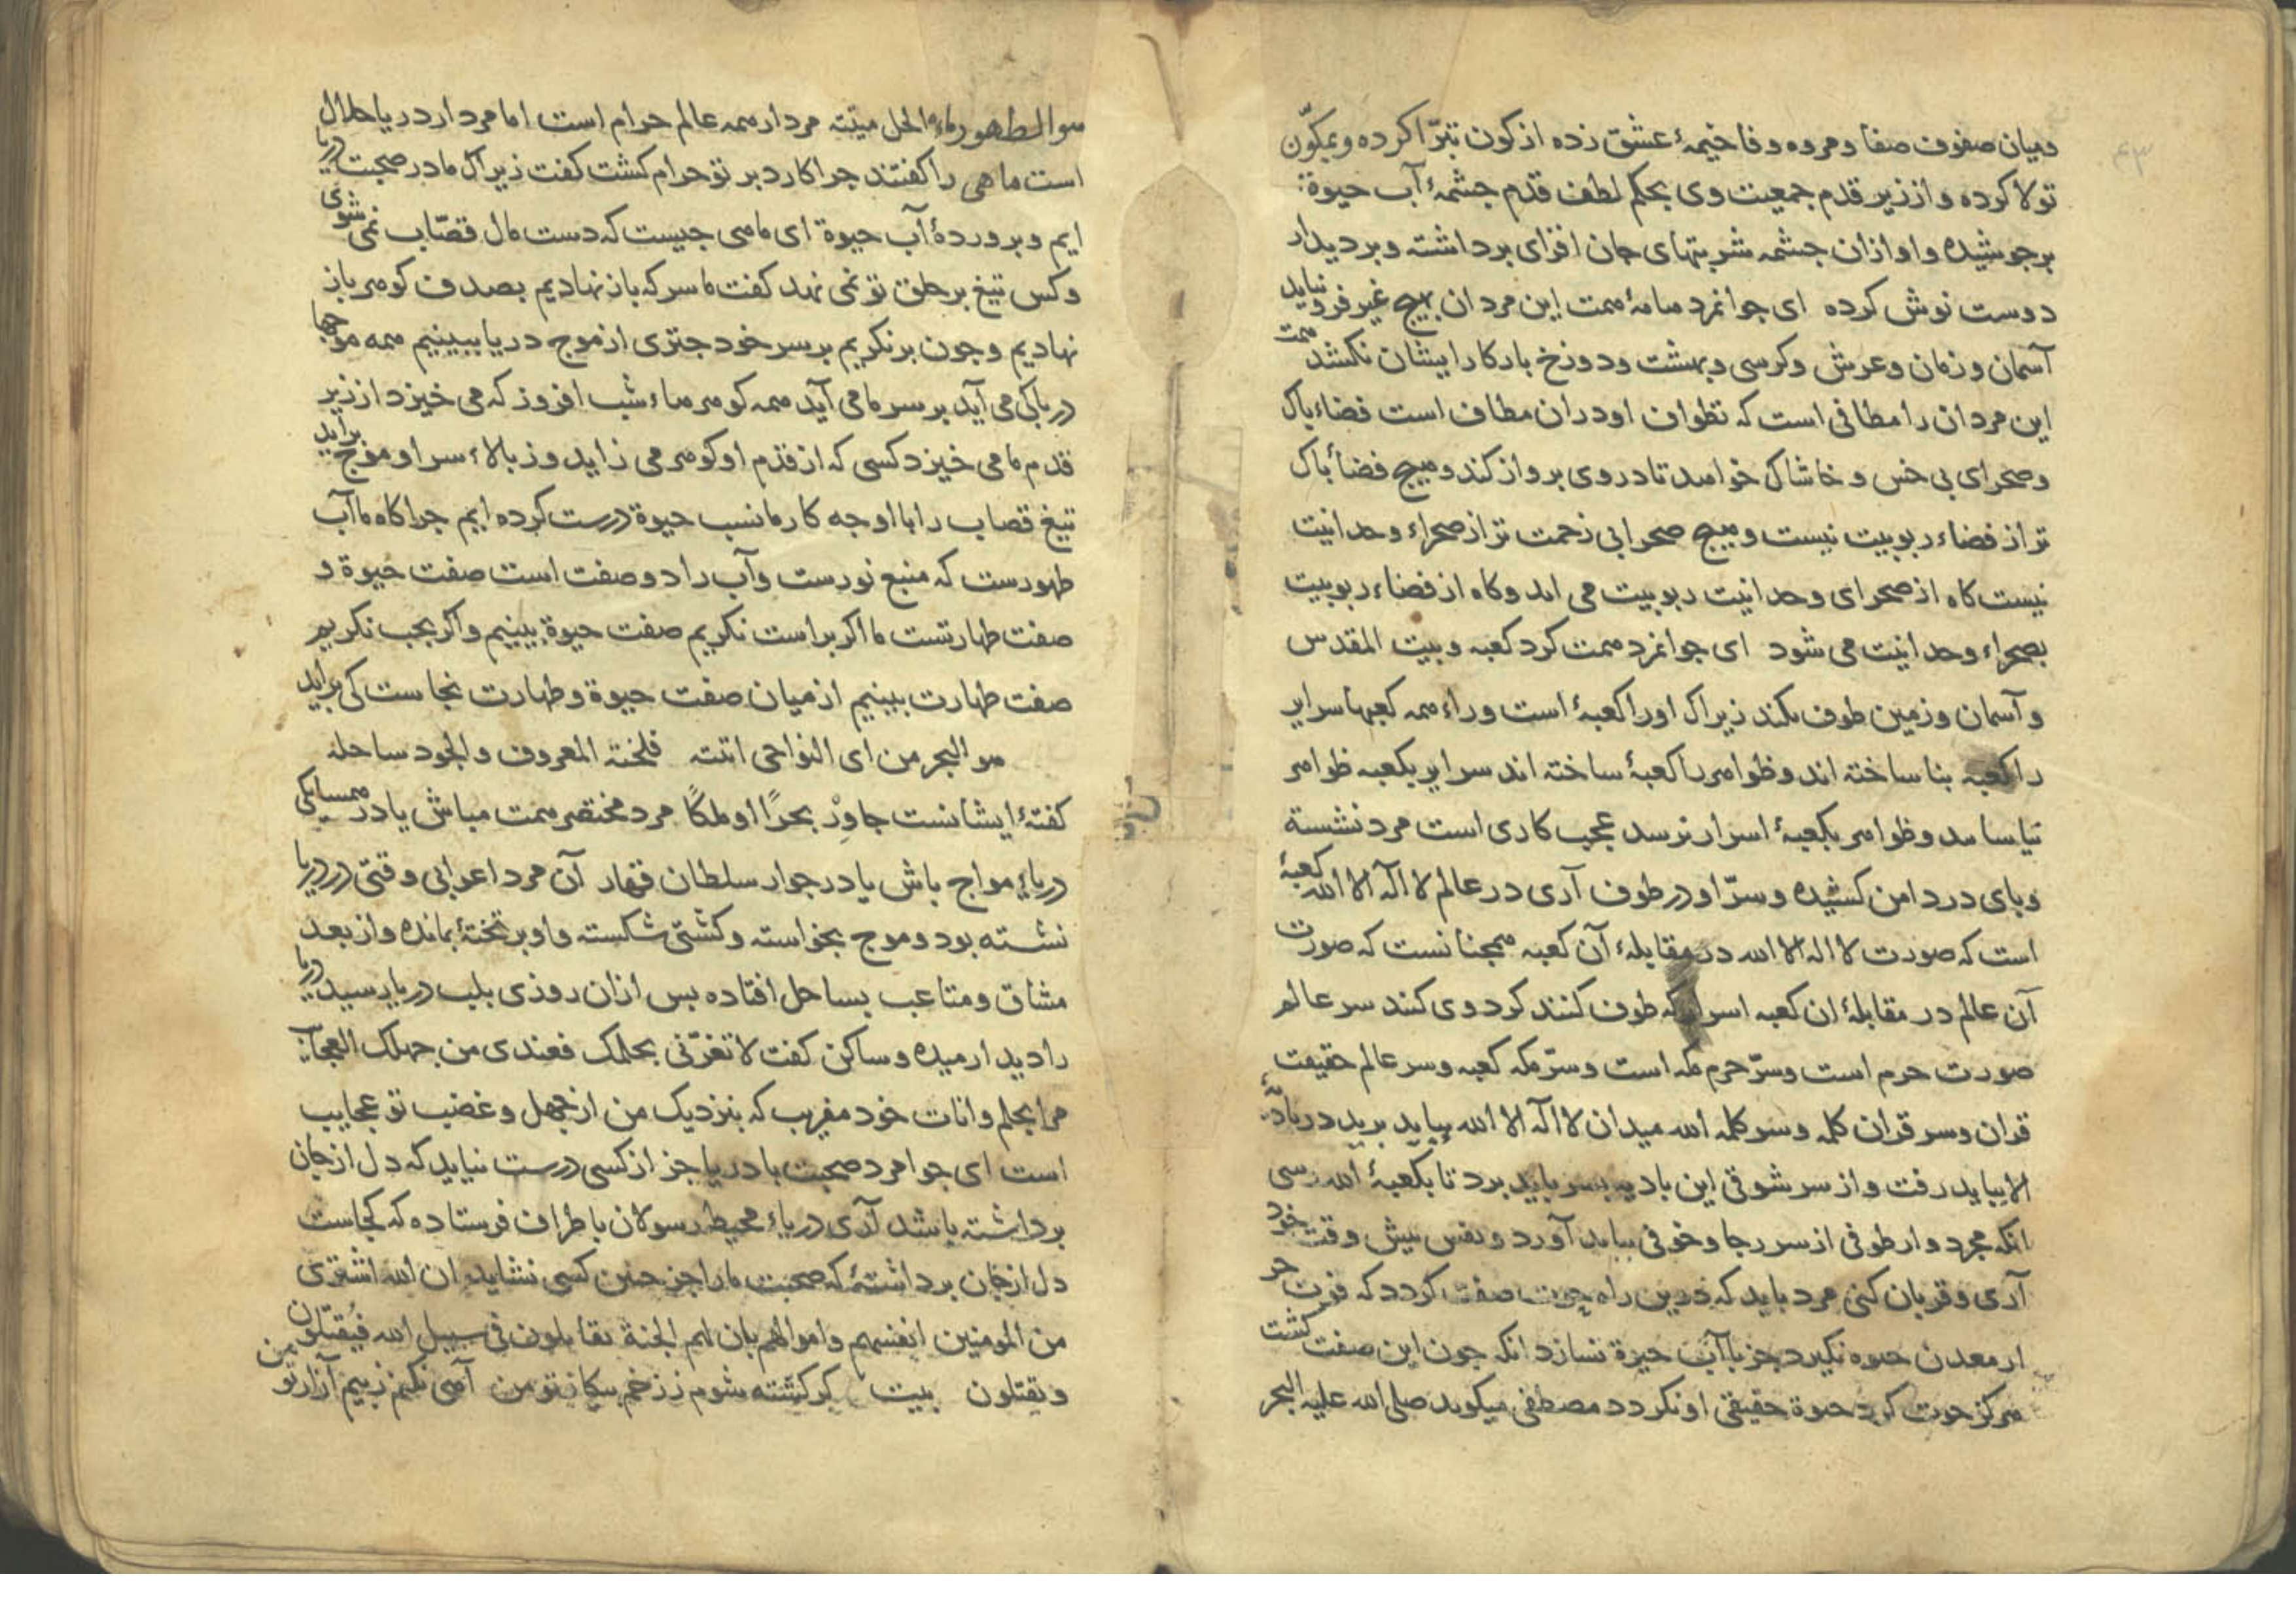 ۴۳
ومیان صفوف صفا ومروه وفا خیمهٔ عشق زده از کون تبرّا کرده وبمکوّن
تولا کرده واز زیر قدم جمعیت وی بحکم لطف قدم جشمهٔ آب حیوة
برجوشیده واو ازان جشمه شربتهای جان افزای برداشته وبر دیدار
دوست نوش کرده ای جوانمرد هامهٔ همت این مردان بهیج غیر فرو نیاید
آسمان وزمان وعرش وکرسی وبهشت ودوزخ بارکارا ایشان نکشد همت
این مردان را مطافی است که تطواف او دران مطاف است فضاء باک
وصحرای بی خس و خاشاک خواهد تا در وی برواز کند وهیج فضاء باک
تر از فضاء ربوبیت نیست وهیج صحرا بی زحمت تر از صحراء وحدانیت
نیست کاه از صحرای وحدانیت ربوبیت می اید وکاه از فضاء ربوبیت
بصحراء وحدانیت می شود ای جوانمرد همت کرد کعبه وبیت المقدس
وآسمان وزمین طوف نکند زیراک اورا کعبهٔ است وراء همه کعبها سرایر
را کعبه بنا ساخته اند وظواهر را کعبهٔ ساخته اند سرایر بکعبه ظواهر
نیاساید وظواهر بکعبهٔ اسرار نرسد عجب کاری است مرد نشسته
وبای در دامن کشیده وسرّ او در طوف آری در عالم لا اله الا الله کعبهٔ
است که صورت لا اله الا الله در مقابلهٔ آن کعبه همجنانست که صورت
آن عالم در مقابلهٔ ان کعبه اسرار که طوف کنند کرد وی کنند سر عالم
صورت حرم است وسرّ حرم مکه است وسرّ مکه کعبه وسر عالم حقیقت
قران وسر قران کلمه وسر کلمه الله میدان لا اله الا الله بباید برید در بادیهٔ
الا بباید رفت واز سر شوقی این بادیه بسر باید برد تا بکعبهٔ الله رسی
انکه مجرد وار طوفی از سر رجا وخوفی بباید آورد ونفس بیش وقت خود
آری وقربان کنی مرد باید که درین راه حوت صفت کردد که قوت جز
از معدن حیوة نکیرد جز با آب حیوة نسازد انکه جون این صفت کشت
هرکز حوت کرد حیوة حقیقی او نکردد مصطفی میکوید صلی الله علیه البحر
هو الطهور ماءه الحل میتته مردار همه عالم حرام است اما مردار دریا حلال
است ماهی را کفتند جرا کارد بر تو حرام کشت کفت زیراک ما در صحبت دریا
ایم وبروردهٔ آب حیوة ای ماهی جیست که دست مال قصّاب نمی شوی
وکس تیغ بر حلق تو نمی نهد کفت ما سر که باز نهادیم بصدف کوهر باز
نهادیم وجون برنکریم بر سر خود جتری از موج دریا ببینیم همه موجها
دریا کی می آید بر سر ما می آید همه کوهرهاء شب افروز که می خیزد از زیر
قدم ما می خیزد کسی که از قدم او کوهر می زاید وز بالاء سر او موج براید
تیغ قصاب را با او جه کار ما نسب حیوة درست کرده ایم جراکاه ما آب
طهورست که منبع نورست وآب را دو صفت است صفت حیوة و
صفت طهارتست ما اکر براست نکریم صفت حیوة بینیم واکر بجب نکریم
صفت طهارت ببینیم از میان صفت حیوة وطهارت نجاست کی براید
هو البحر من ای النواحی اتته فلجته المعروف والجود ساحله
کفتهٔ ایشانست جاوِرْ بحرًا او ملکًا مرد مختصر همت مباش یا در همسایکی
دریاء مواج باش یا در جوار سلطان قهار آن مرد اعرابی وقتی در دریا
نشسته بود وموج بخواسته وکشتی شکسته واو بر تختهٔ بمانده واز بعد
مشاق ومتاعب بساحل افتاده بس ازان روزی بلب دریا رسید دریا
را دید ارمیده وساکن کفت لا تغرّنی بحلمک فعندی من جهلک العجایب
مرا بحلم وانات خود مفریب که بنزدیک من از جهل وغضب تو عجایب
است ای جوامرد صحبت با دریا جز از کسی درست نیاید که دل از جان
برداشته باشد آری دریاء محیط رسولان باطراف فرستاده که کجاست
دل از جان برداشتهٔ که صحبت ما را جز جنین کسی نشاید ان الله اشتری
من المومنین انفسهم واموالهم بان لهم الجنة یقاتلون فی سبیل الله فیُقتلون
ویقتلون بیت کر کشته شوم ز زخم بیکان تو من آهی نکنم ز بیم آزار تو من